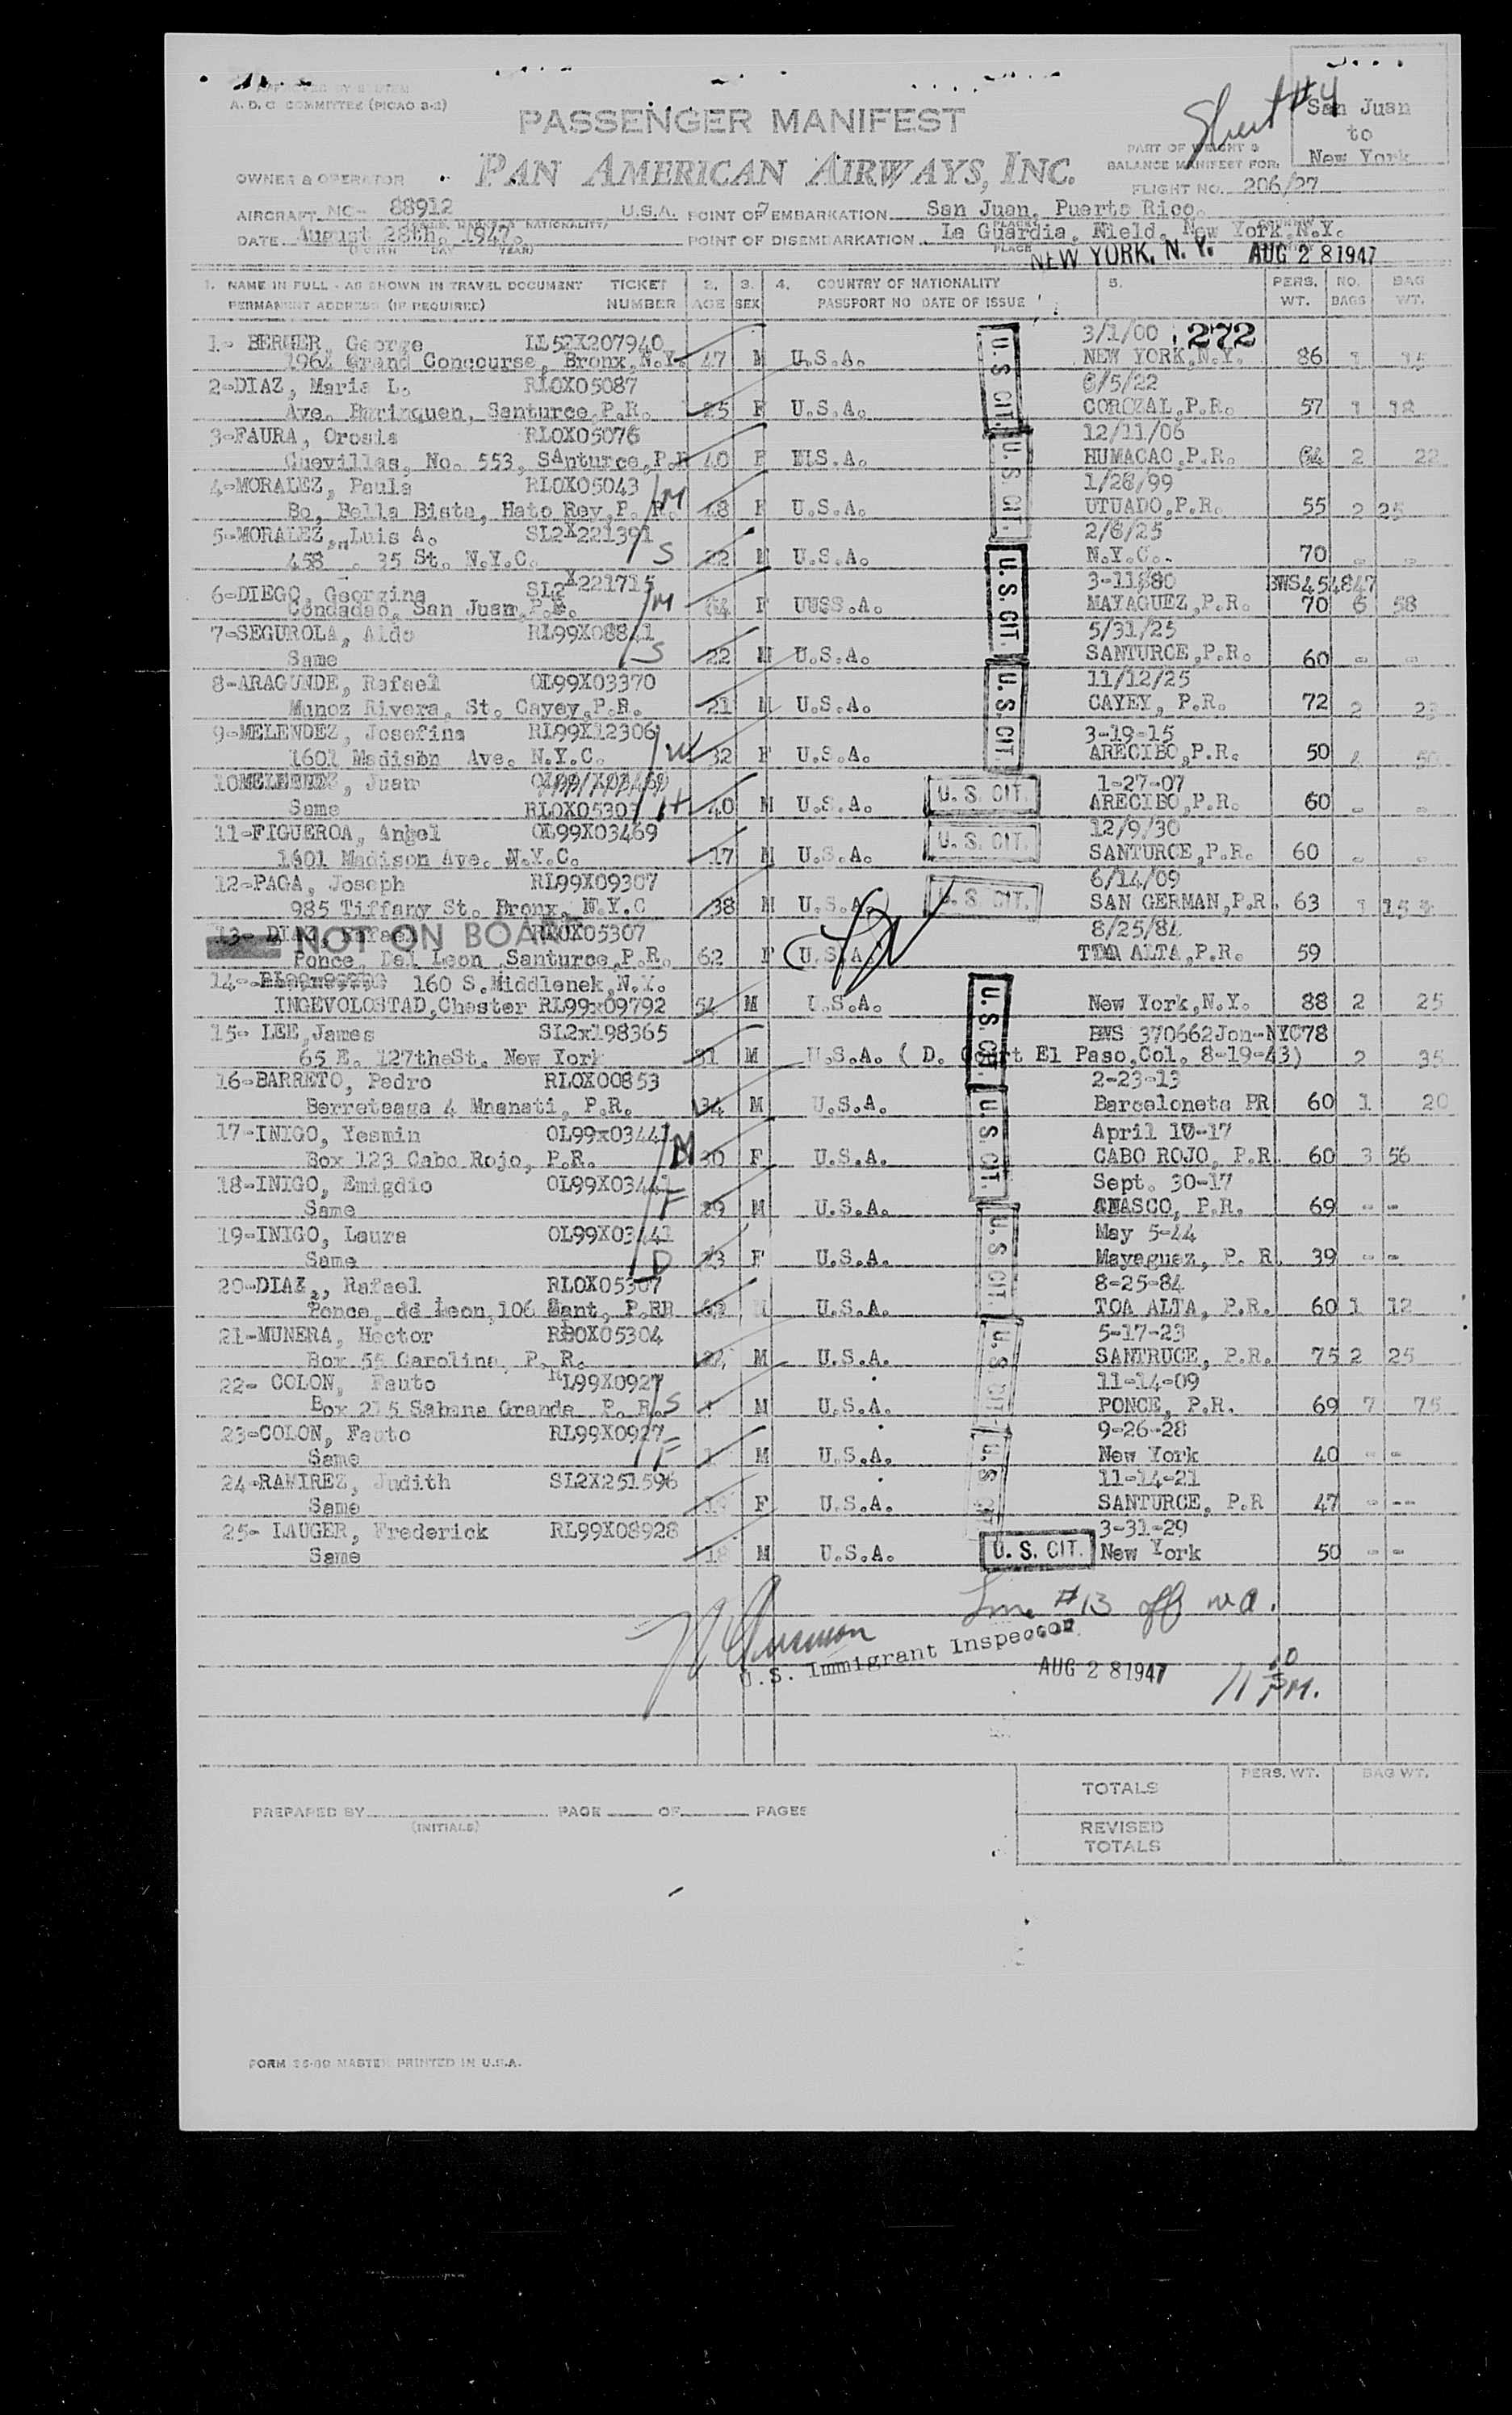 APPROVED BY SYSTEM
A. D. C COMMITTEE (PICAO 3-2)
PASSENGER MANIFEST
Sheet #4
San Juan
to
New York
PAN AMERICAN AIRWAYS, INC.
PART OF WEIGHT &
BALANCE MANIFEST FOR:
OWNER & OPERATOR
FLIGHT NO. 206/27
AIRCRAFT NC- 88912 U.S.A. POINT OF EMBARKATION San Juan, Puerto Rico.
DATE August 28th, 1947. POINT OF DISEMBARKATION La Guardia, Nield, New York,N.Y.
(MONTH DAY YEAR) PLACE
NEW YORK, N. Y. AUG 2 8 1947
1. NAME IN FULL - AS SHOWN IN TRAVEL DOCUMENT TICKET 2. 3. 4. COUNTRY OF NATIONALITY 5. PERS. NO. BAG
PERMANENT ADDRESS (IF REQUIRED) NUMBER AGE SEX PASSPORT NO DATE OF ISSUE WT. BAGS WT.
1- BERGER, George LL52X207940 3/1/00 272
1964 Grand Concourse, Bronx,N.Y. 47 M U.S.A. U. S CIT. NEW YORK,N.Y. 86 1 15
2-DIAZ, Maria L. RLOX05087 6/5/22
Ave. Burinquen, Santurce,P.R. 25 F U.S.A. COROZAL,P.R. 57 1 18
3-FAURA, Orosia RLOX05076 12/11/06
Guevillas, No. 553, SAnturce,P.R 40 F U.S. CIT. HUMACAO,P.R. 64 2 22
4-MORALEZ, Paula RLOX05043 /M 1/28/99
Bo, Bella Bista, Hato Rey,P. R. 48 F U.S.A. UTUADO,P.R. 55 2 25
5-MORALEZ, Luis A. SL2X221391 /S 2/6/25
458 . 35 St. N.Y.C. 22 M U.S. CIT. N.Y.C. 70 - -
6-DIEGO, Georgina SL2X221715 /M 3-11-80 BWS454847
Condadao, San Juan,P.R. F UUSS.A. MAYAGUEZ,P.R. 70 6 58
7-SEGUROLA, Aldo RL99X08841 /S 5/31/25
Same 22 M U.S.A. SANTURCE,P.R. 60 - -
8-ARAGUNDE, Rafael OL99X03370 11/12/25
Munoz Rivera, St. Cayey,P.R. 21 M U.S.A. U.S. CIT. CAYEY, P.R. 72 2
9-MELENDEZ, Josefina RL99X12306 /W 3-19-15
1601 Madison Ave. N.Y.C. 32 F U.S.A. ARECIBO,P.R. 50
10MELENDEZ, Juan U. S. CIT. 1-27-07
Same RLOX05303 /H 40 M U.S.A. ARECIBO,P.R. 60 - -
11-FIGUEROA, Angel OL99X03469 U. S. CIT. 12/9/30
1601 Madison Ave. N.Y.C. 17 M U.S.A. SANTURCE,P.R. 60 - -
12-PAGA, Joseph RL99X09307 U. S. CIT. 6/14/09
985 Tiffany St. Bronx, N.Y.C 38 M U.S.A. SAN GERMAN,P.R. 63 1 15
13- DIAZ, Rafael RLOX05307 8/25/84
NOT ON BOARD
Ponce, Del Leon Santurce,P.R. 62 F U.S.A. TOA ALTA,P.R. 59
14- 160 S.Middlenek,N.Y.
INGEVOLOSTAD,Chester RL99x09792 54 M U.S.A. New York,N.Y. 88 2 25
15- LEE,James SL2x198365 U. S. CIT. BWS 370662Jan--NYC78
65 E. 127theSt. New York 31 M U.S.A. ( D. Court El Paso,Col. 8-19-43) 2 35
16-BARRETO, Pedro RLOX00853 2-23-13
Berreteaga 4 Mnanati, P.R. 34 M U.S.A. Barceloneta PR 60 1 20
17-INIGO, Yesmin OL99x03441 /M U. S. CIT. April 10-17
Box 123 Cabo Rojo, P.R. 30 F U.S.A. CABO ROJO, P.R. 60 3 56
18-INIGO, Emigdio OL99X03441 /F Sept. 30-17
Same 29 M U.S.A. ANASCO, P.R. 69 - -
19-INIGO, Laura OL99X03441 /D U. S CIT. May 5-44
Same 23 F U.S.A. Mayaguez, P. R. 39 - -
20-DIAZ,, Rafael RLOX05307 8-25-84
Ponce, de Leon,106 Sant, P.RR 62 M U.S.A. TOA ALTA, P.R. 60 1 12
21-MUNERA, Hector RLOX05304 U. S CIT. 5-17-23
Box 55 Carolina, P. R. 24 M U.S.A. SANTRUCE, P.R. 75 2 25
22- COLON, Fauto RL99X0927 /S 11-14-09
Box 215 Sabana Grande P. R. M U.S.A. PONCE, P.R. 69 7 75
23-COLON, Fauto RL99X0927 /F 9-26-28
Same M U.S.A. New York 40 - -
24-RAMIREZ, Judith SL2X251596 U. S 11-14-21
Same F U.S.A. SANTURCE, P.R 47 - --
25- LAUGER, Frederick RL99X08928 3-31-29
Same 18 M U.S.A. U. S. CIT. New York 50 - -
Line #13 off
U.S. Immigrant Inspector
AUG 2 8 1947 11 50 PM.
PERS. WT. BAG WT.
TOTALS
PREPARED BY PAGE OF PAGES
(INITIALS)
REVISED
TOTALS
FORM MASTER PRINTED IN U.S.A.